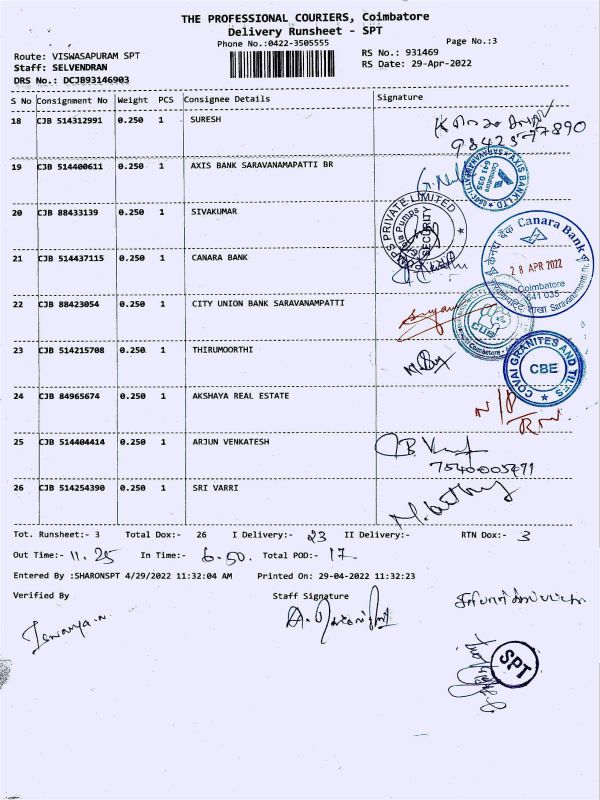 THE PROFESSIONAL COURIERS, Coimbatore
Delivery Runsheet - SPT
Phone No.:0422-3505555
Page No.:3
Route: VISWASAPURAM SPT
RS No.: 931469
Staff: SELVENDRAN
RS Date: 29-Apr-2022
DRS No.: DCJB93146903
S No Consignment No Weight PCS Consignee Details Signature
18 CJB 514312991 0.250 1 SURESH
19 CJB 514400611 0.250 1 AXIS BANK SARAVANAMAPATTI BR
AXIS BANK LTD
Coimbatore
641 035
20 CJB 88433139 0.250 1 SIVAKUMAR
PUMPS PRIVATE LIMITED
SECURITY
21 CJB 514437115 0.250 1 CANARA BANK
केनरा बैंक Canara Bank
28 APR 2022
Coimbatore
641 035
22 CJB 88423054 0.250 1 CITY UNION BANK SARAVANAMPATTI
CUB
Coimbatore
23 CJB 514215708 0.250 1 THIRUMOORTHI
COVAI GRANITES AND TILES
CBE
24 CJB 84965674 0.250 1 AKSHAYA REAL ESTATE
N/P
RTN.
25 CJB 514404414 0.250 1 ARJUN VENKATESH
26 CJB 514254390 0.250 1 SRI VARRI
Tot. Runsheet:- 3 Total Dox:- 26 I Delivery:- 23 II Delivery:- RTN Dox:- 3
Out Time:- 11.25 In Time:- 6.50. Total POD:- 17.
Entered By :SHARONSPT 4/29/2022 11:32:04 AM Printed On: 29-04-2022 11:32:23
Verified By Staff Signature
SPT